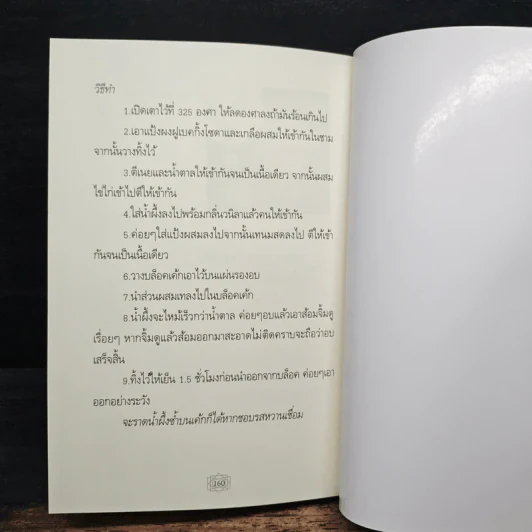 วิธีทำ
1.เปิดเตาไว้ที่ 325 องศา ให้ลดองศาลงถ้ามันร้อนเกินไป
2.เอาแป้งผงฟูเบคกิ้งโซดาและเกลือผสมให้เข้ากันในชาม
จากนั้นวางทิ้งไว้
3.ตีเนยและน้ำตาลให้เข้ากันจนเป็นเนื้อเดียว จากนั้นผสม
ไข่ไก่เข้าไปตีให้เข้ากัน
4.ใส่น้ำผึ้งลงไปพร้อมกลิ่นวนิลาแล้วคนให้เข้ากัน
5.ค่อยๆใส่แป้งผสมลงไปจากนั้นเทนมสดลงไป ตีให้เข้า
กันจนเป็นเนื้อเดียว
6.วางบล็อคเค้กเอาไว้บนแผ่นรองอบ
7.นำส่วนผสมเทลงไปในบล็อคเค้ก
8.น้ำผึ้งจะไหม้เร็วกว่าน้ำตาล ค่อยๆอบแล้วเอาส้อมจิ้มดู
เรื่อยๆ หากจิ้มดูแล้วส้อมออกมาสะอาดไม่ติดคราบจะถือว่าอบ
เสร็จสิ้น
9.ทิ้งไว้ให้เย็น 1.5 ชั่วโมงก่อนนำออกจากบล็อค ค่อยๆเอา
ออกอย่างระวัง
จะราดน้ำผึ้งซ้ำบนเค้กก็ได้หากชอบรสหวานเชื่อม
160